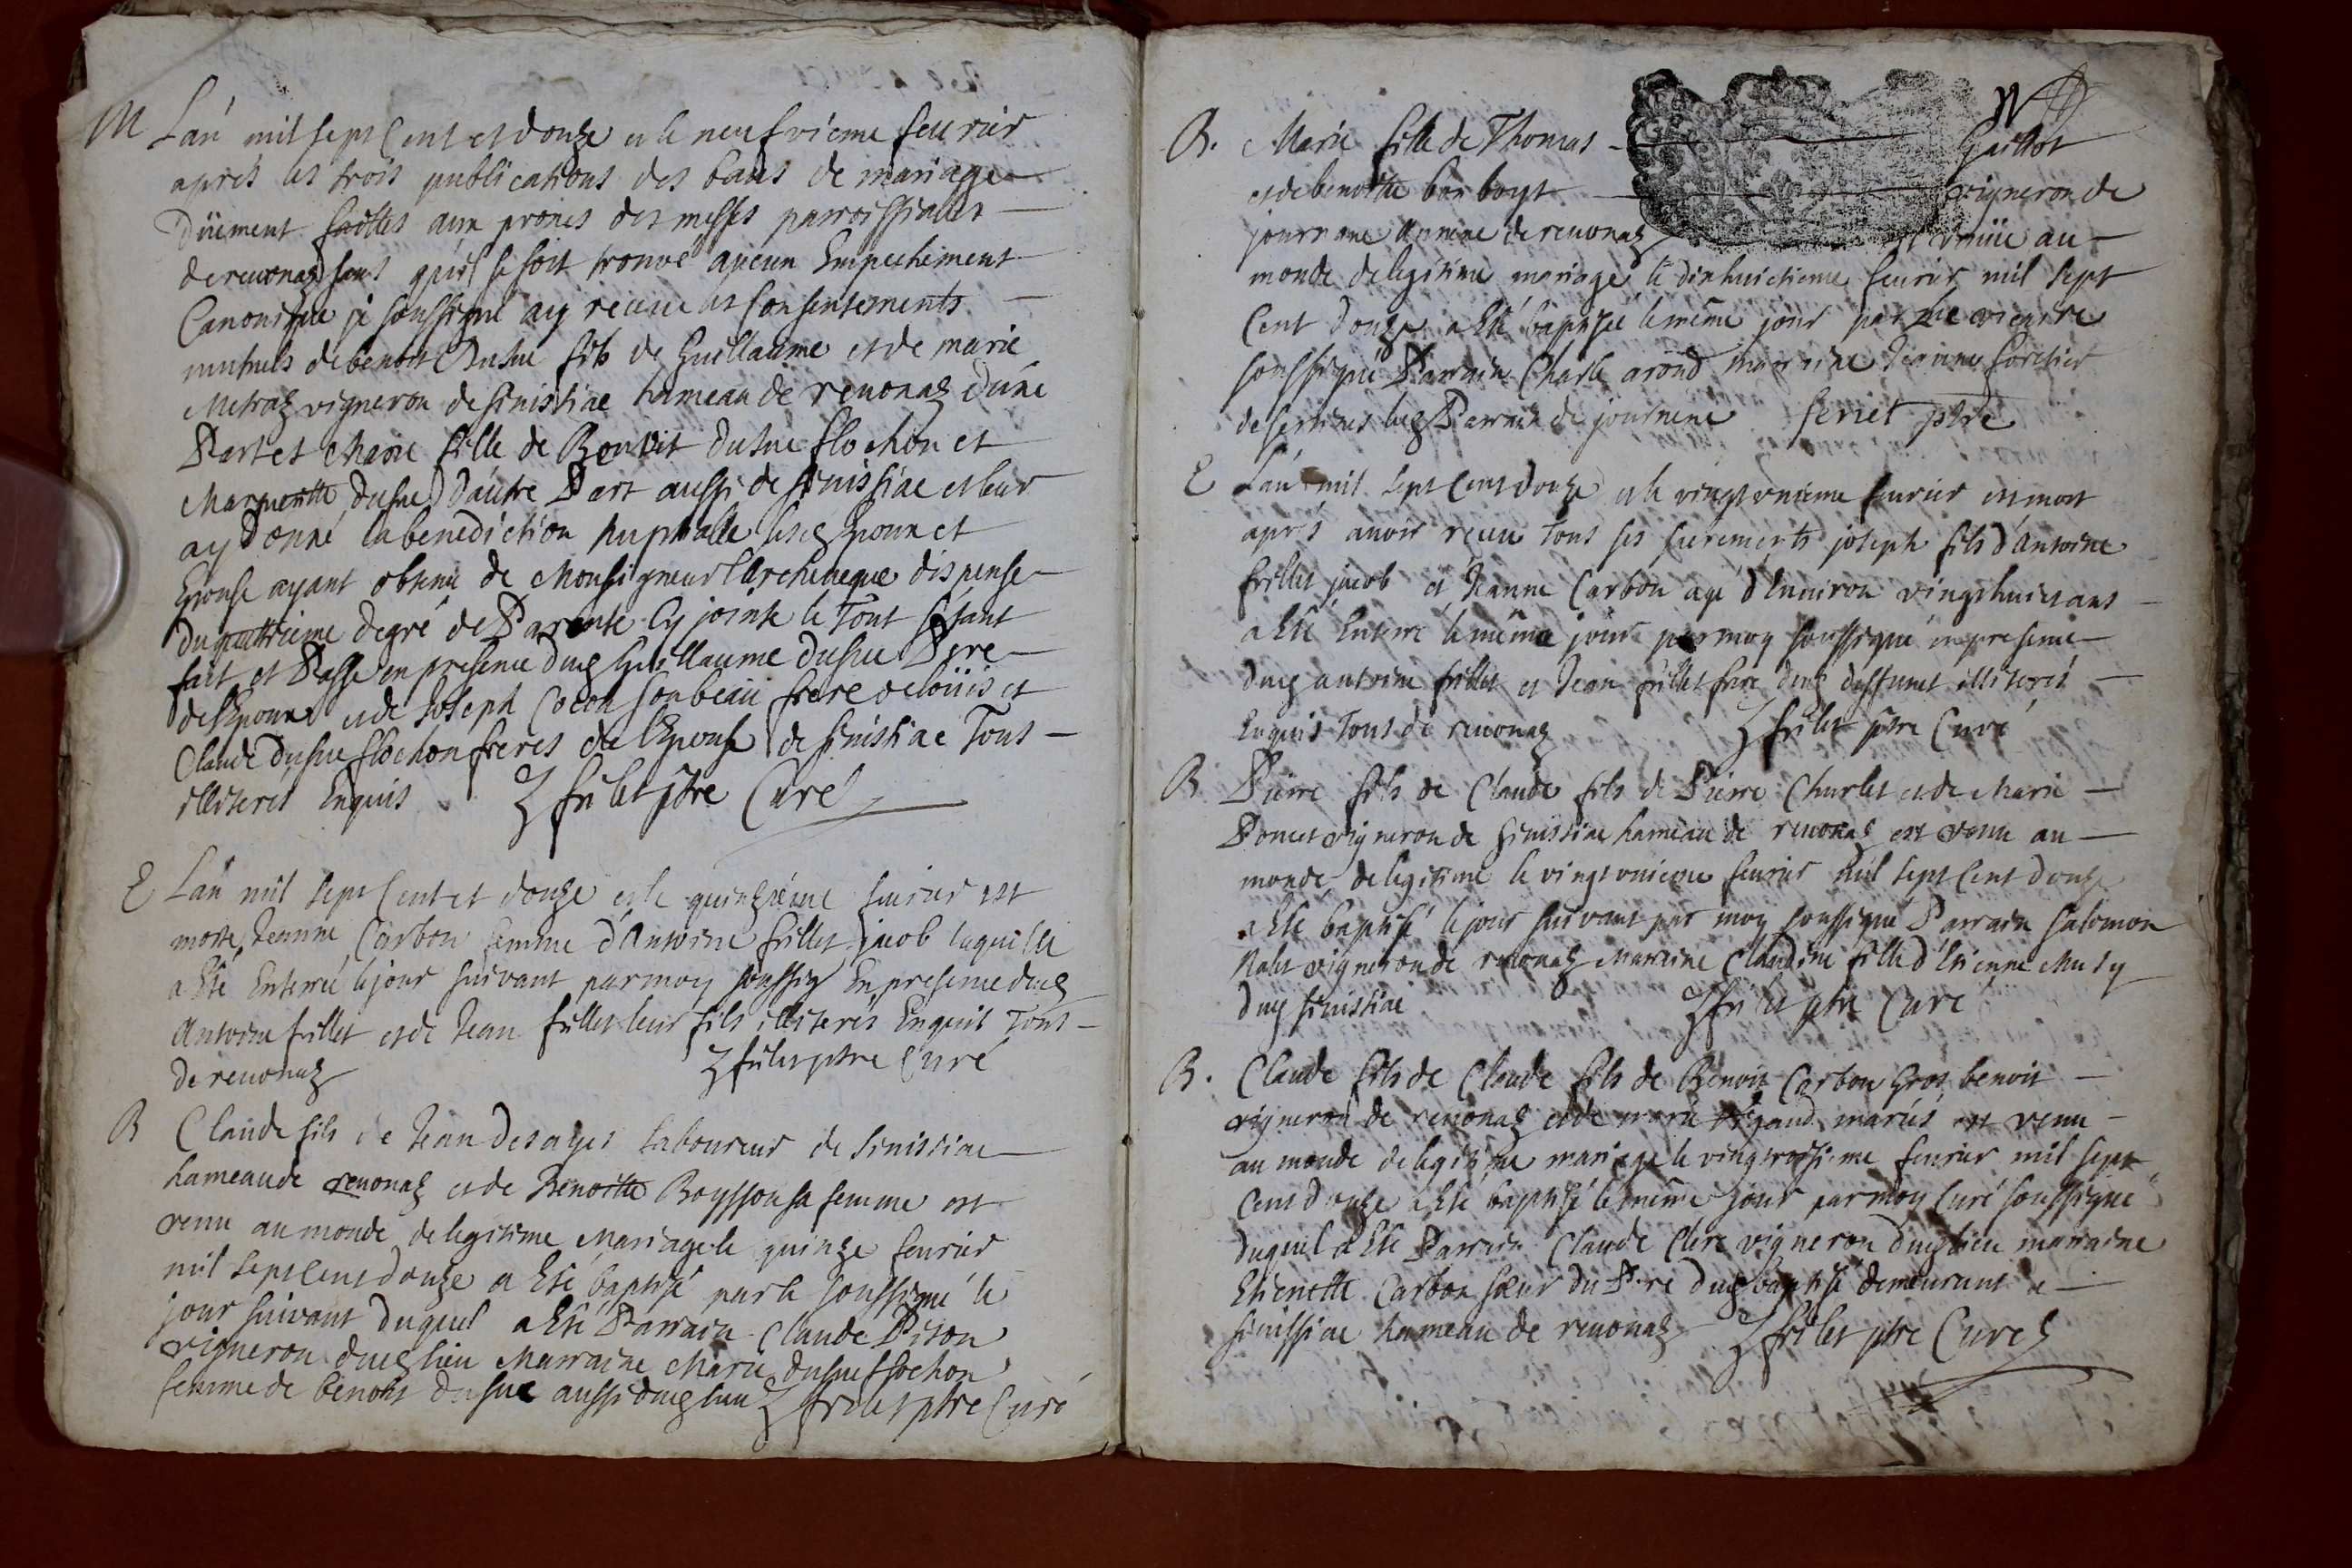 M L'an mil sept Cent et douze et le neufvieme feurier
aprés les trois publications des bans de mariage
Düement faittes aux prones des messes parroissialles
de reuonaz sans qu'il se soit trouvé aucun Empechement
Canonique je soussigné ay receu les Consentements
mutuels de benoit Dusue fils de Guillaume et de marie
Metraz vigneron de sinissiae hameau de reuonaz d'une
Part et Marie fille de Benoit dusue flochon et
Margueritte dusue d'autre Part aussi de sinissiae et leur
ay Donné la benediction nuptialle lesd Epoux et
Epouse ayant obtenu de Monseigneur l'Archeueque dispense
du quattrieme degré de Parenté Cy jointe le Tout s'estant
fait et Passe en presence dud Guillaume dusue Pere
de l'Epoux et de Joseph Cocon son beau frere de loüis et
Claude dusue flochon freres de l'Epouse de sinissiae Tous
illiterés Enquis J frilet ptre Curé
E L'an mil sept Cent et douze et le quinzième feurier est
morte Jeanne Carbon femme d'Antoine frillet jacob laquelle
a Esté Enterrée le jour suivant par moy soussig En presence dud
Antoine frillet et de Jean frillet leur fils illiterés Enquis Tous
de reuonaz J frilet ptre Curé
B Claude fils de Jean Desayes Laboureur de sinissiae
hameau de reuonaz et de Benoitte Boysson sa femme est
venu au monde de legitime Mariage le quinze feurier
mil sept cent douze a Esté baptisé par le soussigné le
jour suivant duquel a Esté Parrain Claude Piton
vigneron dud lieu Marraine Marie dusue flochon
femme de benoit dusue aussi dud lieu J frilet ptre Curé
B. Marie fille de Thomas Gaillot
et de benoitte bonboyt vigneron de
journane Annexe de reuonaz est venüe au
monde de legitime mariage le dixhuictieme feurier mil sept
Cent Douze a Esté baptisée le même jour par me vicaire
soussigné Parrain Charle arond marraine Jeanne
de serrieres led Parrain de journene feriet ptre
E L'an mil sept Cent douze et le vingt vnieme feurier est mort
aprés auoir receu Tous ses sacrements joseph fils d'Antoine
frillet jacob et Jeanne Carbon agé d'Enuiron vingt huict ans
a Esté Enterré le même jour par moy soussigné en presence
dud antoine frillet et Jean frillet frere dud deffunct illiterés
Enquis Tous de reuonaz J frilet ptre Curé
B Pierre fils de Claude fils de Pierre Charlet et de Marie
Poncet vigneron de sinissiae hameau de reuonaz est venu au
monde de legitime le vingt vnieme feurier mil sept Cent douze
a Esté baptisé le jour suivant par moy soussigné Parrain salomon
Ralet vigneron de reuonaz Marraine Claudine fille d'Etienne Musy
dud sinissiae J frilet ptre Curé
B. Claude fils de Claude fils de Benoit Carbon Gros benoit
vigneron de reuonaz et de marie mariés est venu
au monde de legitime mariage le vingtroisieme feurier mil sept
Cent Douze a Esté baptisé le même jour par moy Curé soussigné
duquel a Esté Parrain Claude Clere vigneron dud lieu marraine
Etienette Carbon sœur du Pere dud baptisé demeurant a
sinissiae hameau de reuonaz J frilet ptre Curé